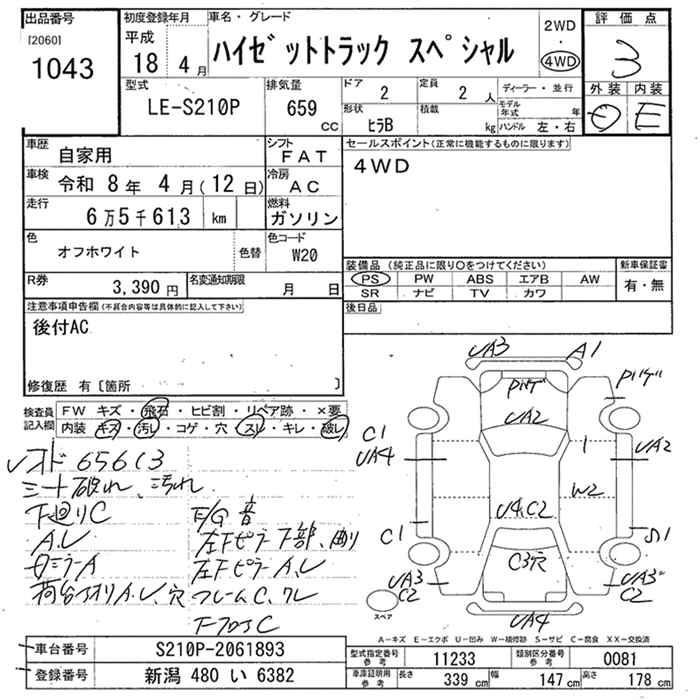 出品番号
[2060]
1043
初度登録年月
平成
18 4 月
車名・グレード
ハイゼットトラック スペシャル
2WD
・
4WD
評価点
3
外装 内装
E
型式
LE-S210P
排気量
659
cc
ドア
2
定員
2 人
ディーラー・並行
形状
ヒラB
積載
kg
モデル年式 年
ハンドル 左・右
車歴
自家用
シフト
FAT
車検
令和 8年 4月(12日)
冷房
AC
走行
6万5千613 km
燃料
ガソリン
色
オフホワイト
色替
色コード
W20
R券
3,390 円
名変通知期限
月 日
セールスポイント(正常に機能するものに限ります)
4WD
装備品 (純正品に限り○をつけてください)
PS PW ABS エアB AW
SR ナビ TV カワ
新車保証書
有・無
後日品
注意事項申告欄(不具合内容等は具体的に記入して下さい)
後付AC
修復歴 有〔箇所 〕
検査員記入欄
FW キズ・飛石・ヒビ割・リペア跡・×要
内装 キズ・汚レ・コゲ・穴・スレ・キレ・破レ
シート破れ、汚れ
下廻りC
F/G 音
左Fピラー下部、曲り
左Fピラー A.U
フレームC、クレ
UA3
A1
UA2
C1
UA4
UA2
1
W2
U4.C2
C1
S1
C3穴
UA3
C2
UA3
C2
UA4
スペア
A-キズ E-エクボ U-凹み W-補修跡 S-サビ C-腐食 XX-交換済
車台番号
S210P-2061893
登録番号
新潟 480 い 6382
型式指定番号
参考
11233
類別区分番号
参考
0081
車庫証明用
参考
長さ
339 cm
幅
147 cm
高さ
178 cm